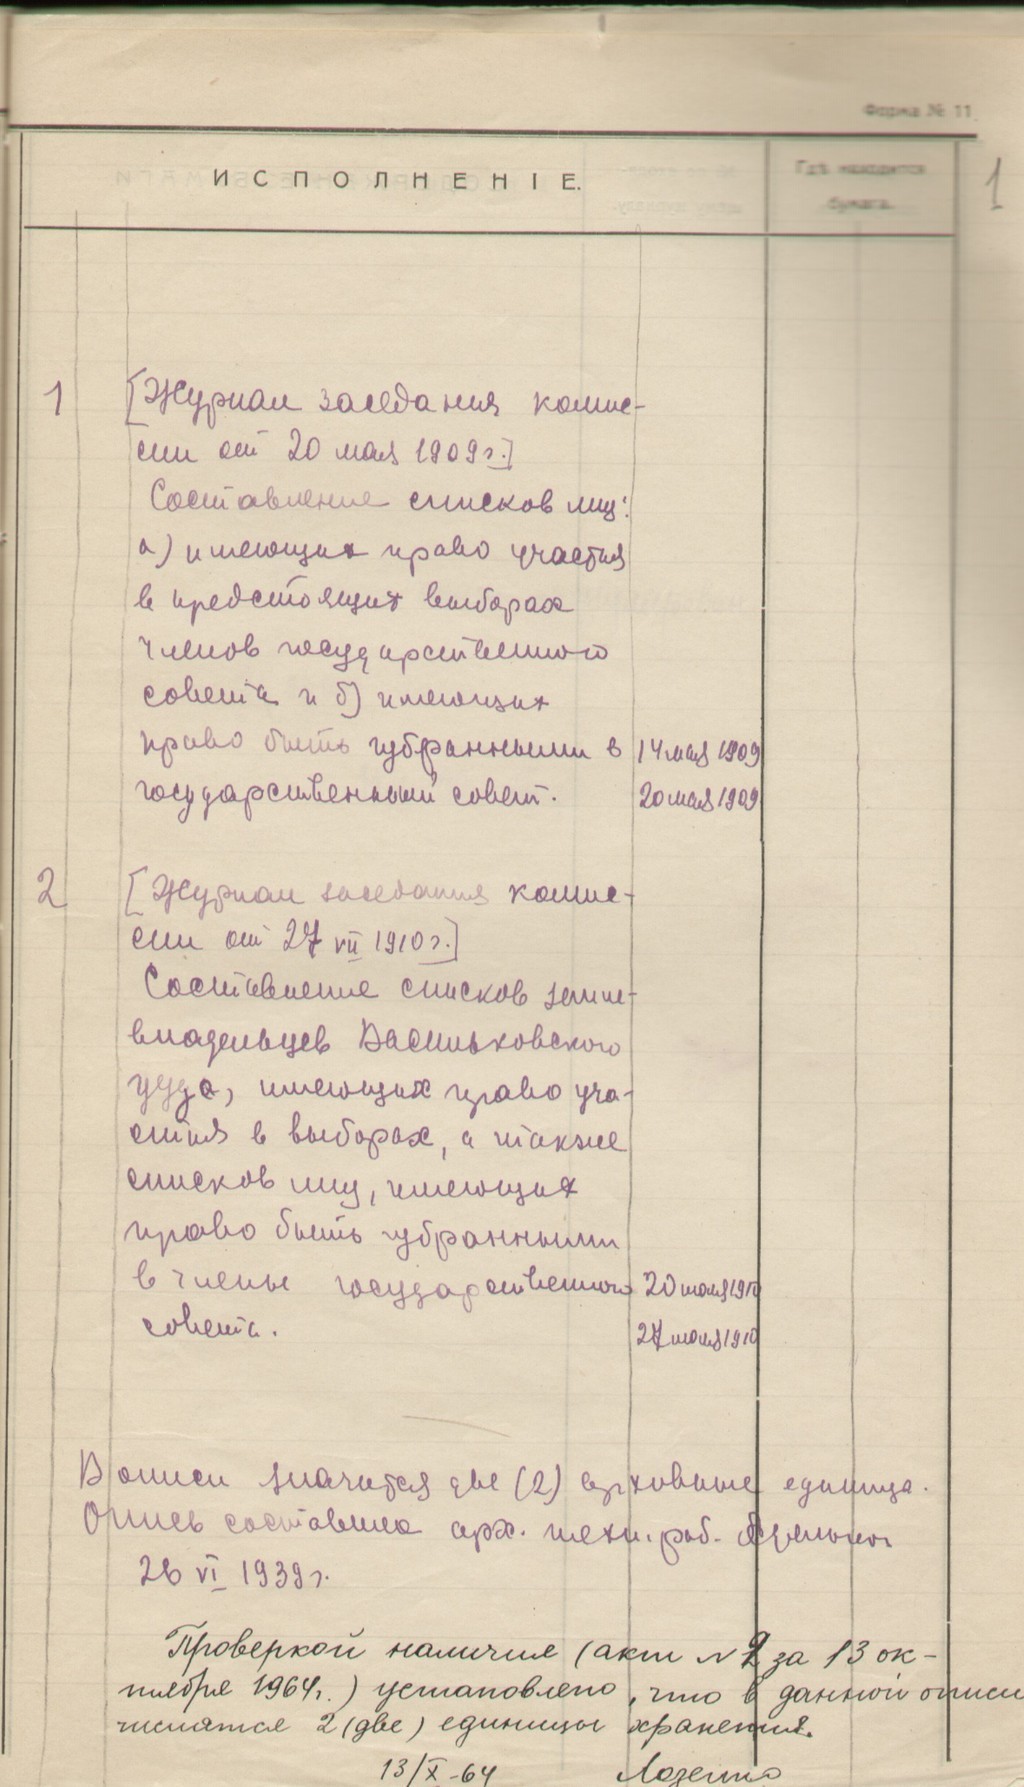 Форма № 11.
ИСПОЛНЕНІЕ.
Гдѣ находится
бумага.
1
1
[Журнал заседания комис-
сии от 20 мая 1909 г.]
Составление списков лиц:
а) имеющих право участия
в предстоящих выборах
членов государственного
совета и б) имеющих
право быть избранными в 14 мая 1909
государственный совет. 20 мая 1909
2
[Журнал заседания комис-
сии от 27 VII 1910 г.]
Составление списков земле-
владельцев Васильковского
уезда, имеющих право уча-
стия в выборах, а также
списков лиц, имеющих
право быть избранными
в члены государственного 20 июля 1910
совета. 27 июля 1910
В описи значится две (2) архивные единица.
Опись составила арх. техн. раб.
26 VI 1939 г.
Проверкой наличия (акт № 2 за 13 ок-
тября 1964 г.) установлено, что в данной описи
числятся 2 (две) единицы хранения.
13/X-64